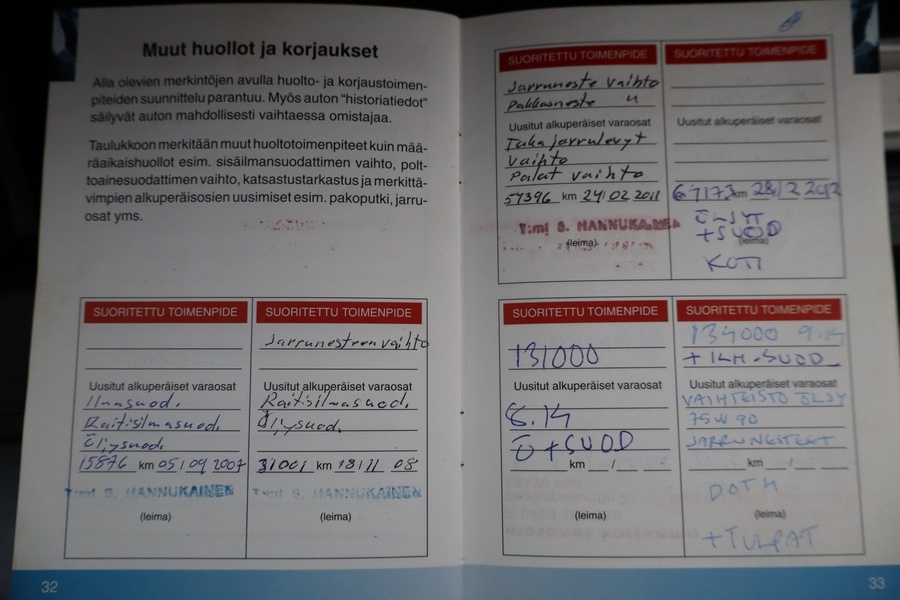 Muut huollot ja korjaukset
Alla olevien merkintöjen avulla huolto- ja korjaustoimen-
piteiden suunnittelu parantuu. Myös auton "historiatiedot"
säilyvät auton mahdollisesti vaihtaessa omistajaa.
Taulukkoon merkitään muut huoltotoimenpiteet kuin mää-
räaikaishuollot esim. sisäilmansuodattimen vaihto, polt-
toainesuodattimen vaihto, katsastustarkastus ja merkittä-
vimpien alkuperäisosien uusimiset esim. pakoputki, jarru-
osat yms.
SUORITETTU TOIMENPIDE
Uusitut alkuperäiset varaosat
Ilmasuod.
Raitisilmasuod.
Öljysuod.
15876 km 05/09 2007
T:mi S. HANNUKAINEN
(leima)
SUORITETTU TOIMENPIDE
Jarrunesteen vaihto
Uusitut alkuperäiset varaosat
Raitisilmasuod.
Öljysuod.
31001 km 13/11 08
T:mi S. HANNUKAINEN
(leima)
32
SUORITETTU TOIMENPIDE
Jarruneste vaihto
Pakkasneste "
Uusitut alkuperäiset varaosat
Takajarrulevyt
Vaihto
Palat vaihto
57396 km 24/02 2011
T:mi S. HANNUKAINEN
(leima)
SUORITETTU TOIMENPIDE
Uusitut alkuperäiset varaosat
67173 km 28/2 2012
ÖLJYT
+SUOD
(leima)
KOTI
SUORITETTU TOIMENPIDE
131000
Uusitut alkuperäiset varaosat
8.14
Ö+SUOD
km / .
(leima)
SUORITETTU TOIMENPIDE
134000 9.14
+ ILM-SUOD
Uusitut alkuperäiset varaosat
VAIHTEISTO ÖLJY
75W90
JARRUNESTEET
km /
DOT4
(leima)
+TULPAT
33